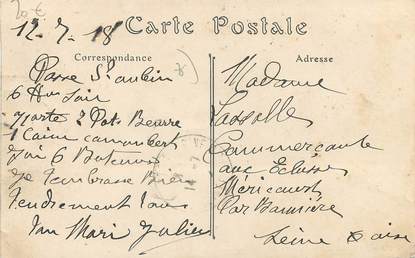 20 €
Carte Postale
12-7-18
Correspondance
Adresse
Passe St aubin
6 Hrs Soir
Porte 2 Pots Beurre
1 Caise camambert
6
Je Tembrasse Bien
Tendrement Tous
Ton Mari Julien
Madame
Lassalle
Commercante
aux Ecluses
Méricourt
Par Bonnière
Seine & oise